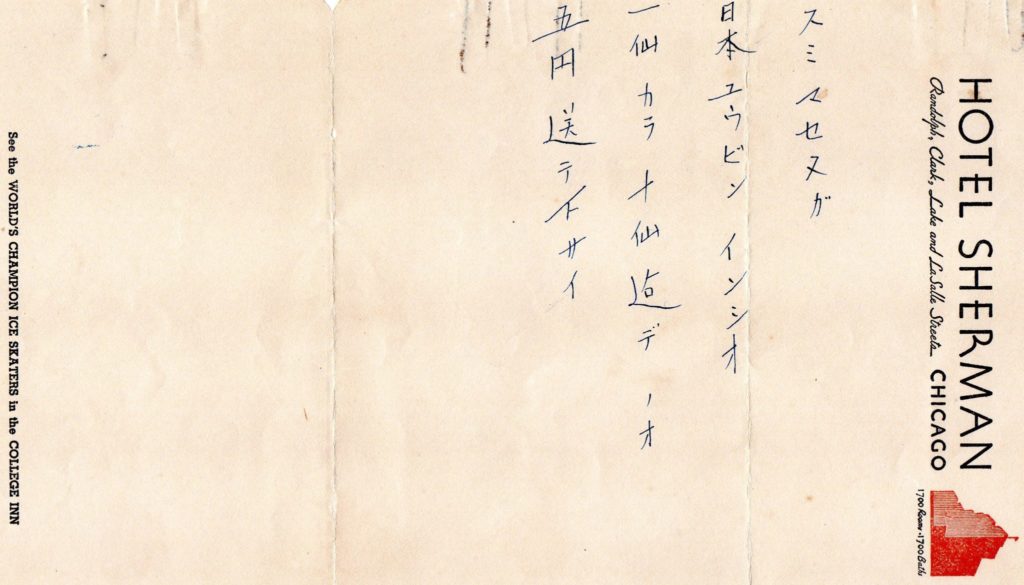 HOTEL SHERMAN
Randolph, Clark, Lake and LaSalle Streets CHICAGO
1700 Rooms-1700 Baths
スミマセヌガ
日本ユウビン インシオ
一仙カラ十仙迠デノオ
五円送テ下サイ
See the WORLD'S CHAMPION ICE SKATERS in the COLLEGE INN